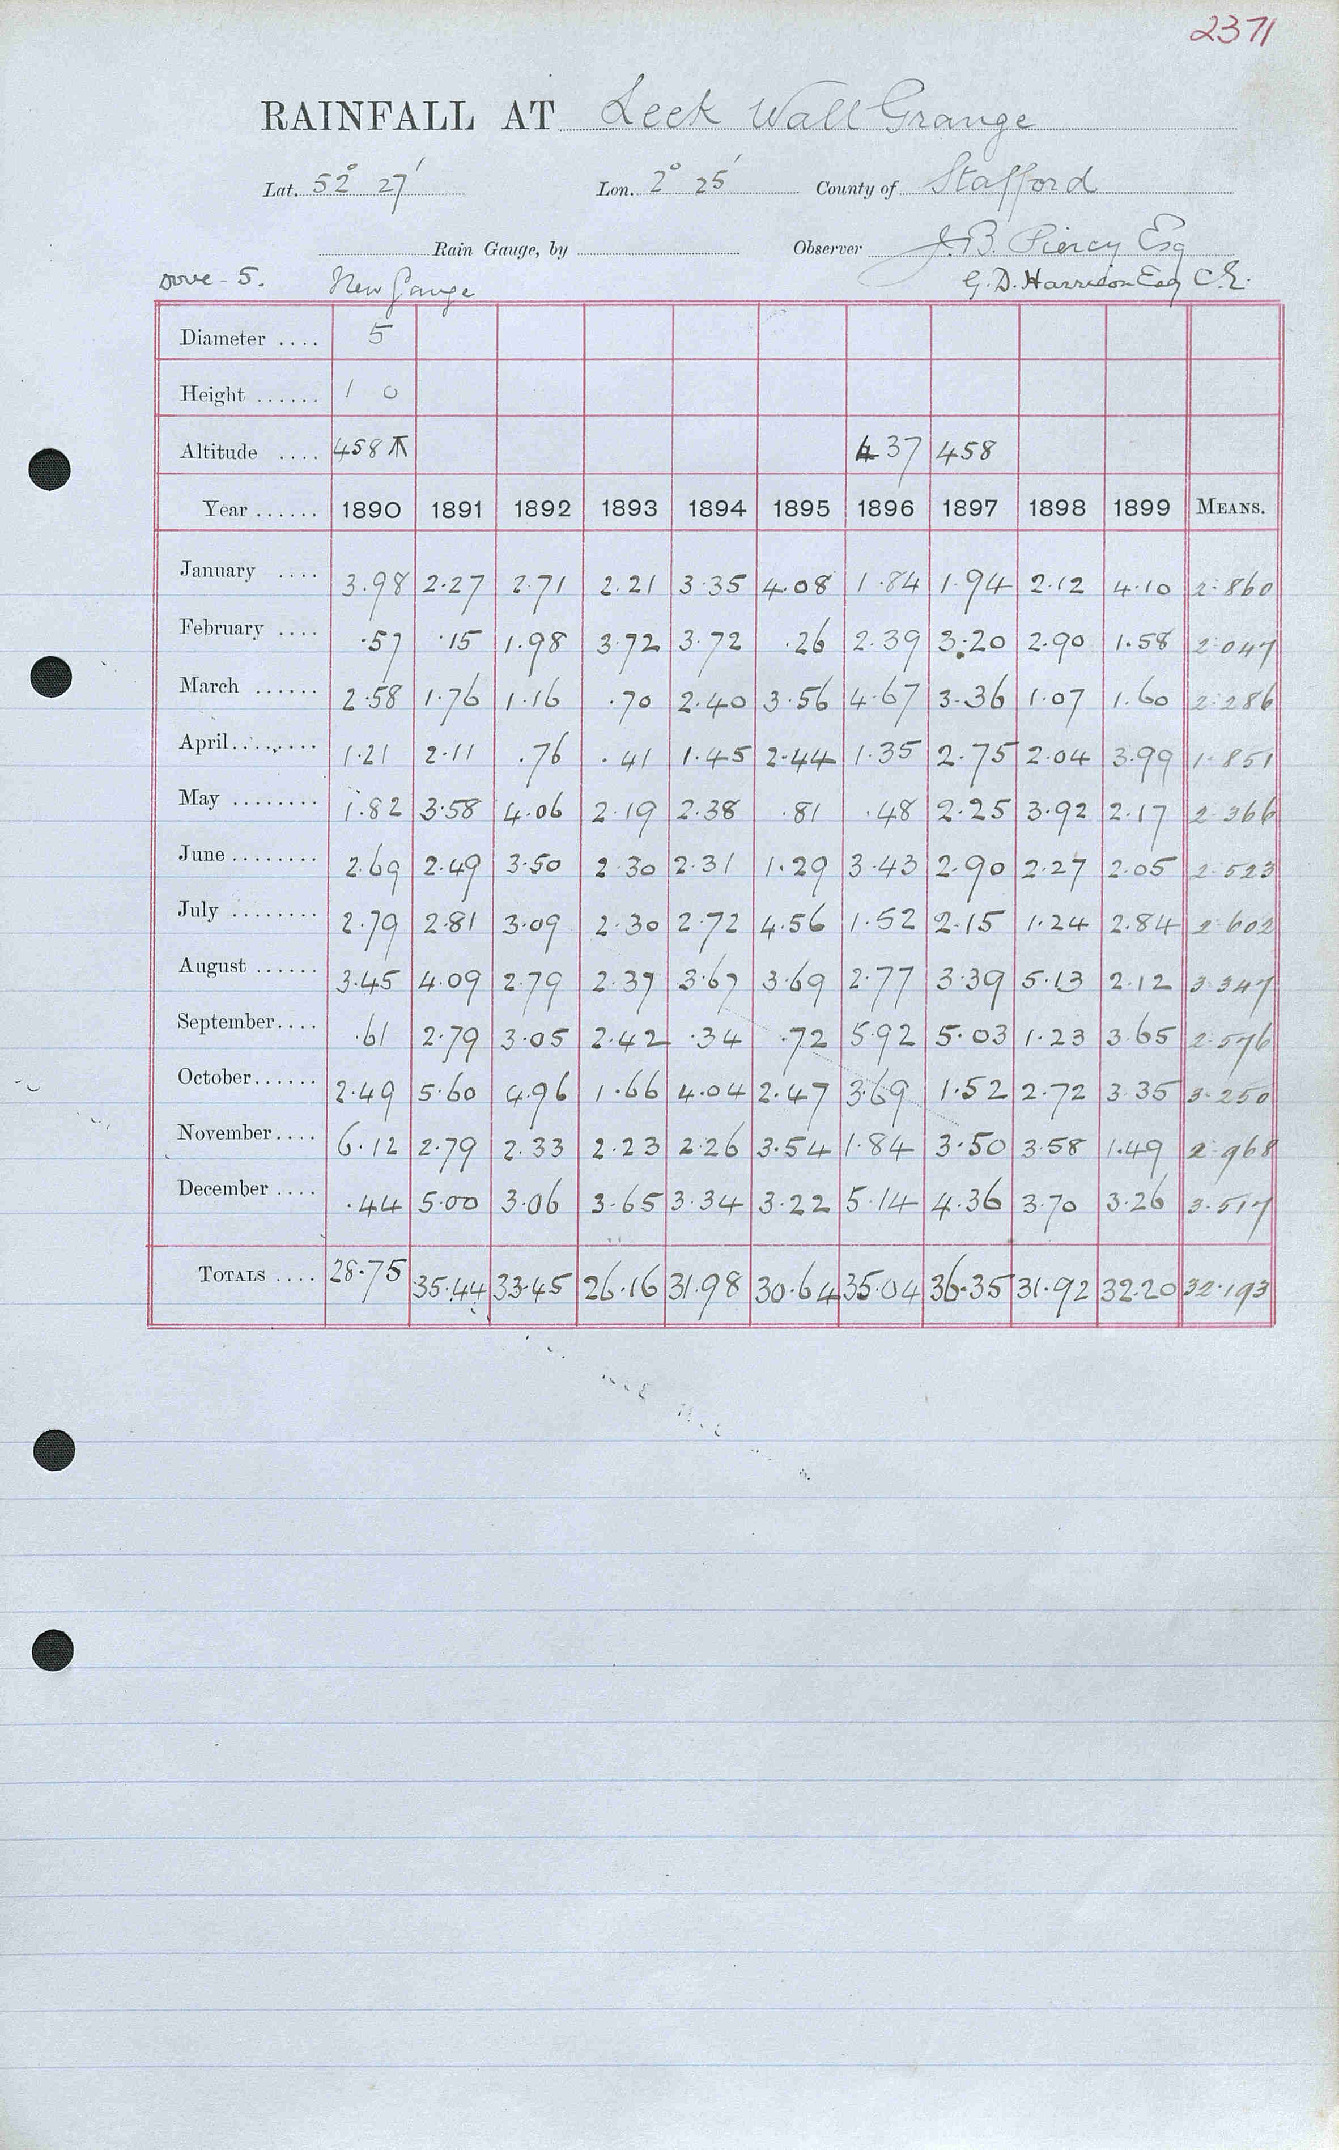 2371
RAINFALL AT Leek Wall Grange
Lat. 52° 27' Lon. 2° 25' County of Stafford
Rain Gauge, by Observer J.B. Piercy Esq
Dove - 5. New Gauge G. D. Harrison Esq C.E.
Diameter .... 5
Height ...... 1 0
Altitude .... 458 437 458
Year ...... 1890 1891 1892 1893 1894 1895 1896 1897 1898 1899 MEANS.
January .... 3.98 2.27 2.71 2.21 3.35 4.08 1.84 1.94 2.12 4.10 2.860
February .... .57 .15 1.98 3.72 3.72 .26 2.39 3.20 2.90 1.58 2.047
March ...... 2.58 1.76 1.16 .70 2.40 3.56 4.67 3.36 1.07 1.60 2.286
April........ 1.21 2.11 .76 .41 1.45 2.44 1.35 2.75 2.04 3.99 1.851
May ........ 1.82 3.58 4.06 2.19 2.38 .81 .48 2.25 3.92 2.17 2.366
June ........ 2.69 2.49 3.50 2.30 2.31 1.29 3.43 2.90 2.27 2.05 2.523
July ........ 2.79 2.81 3.09 2.30 2.72 4.56 1.52 2.15 1.24 2.84 2.602
August ...... 3.45 4.09 2.79 2.37 3.67 3.69 2.77 3.39 5.13 2.12 3.347
September.... .61 2.79 3.05 2.42 .34 .72 5.92 5.03 1.23 3.65 2.576
October...... 2.49 5.60 4.96 1.66 4.04 2.47 3.69 1.52 2.72 3.35 3.250
November.... 6.12 2.79 2.33 2.23 2.26 3.54 1.84 3.50 3.58 1.49 2.968
December .... .44 5.00 3.06 3.65 3.34 3.22 5.14 4.36 3.70 3.26 3.517
TOTALS .... 28.75 35.44 33.45 26.16 31.98 30.64 35.04 36.35 31.92 32.20 32.193